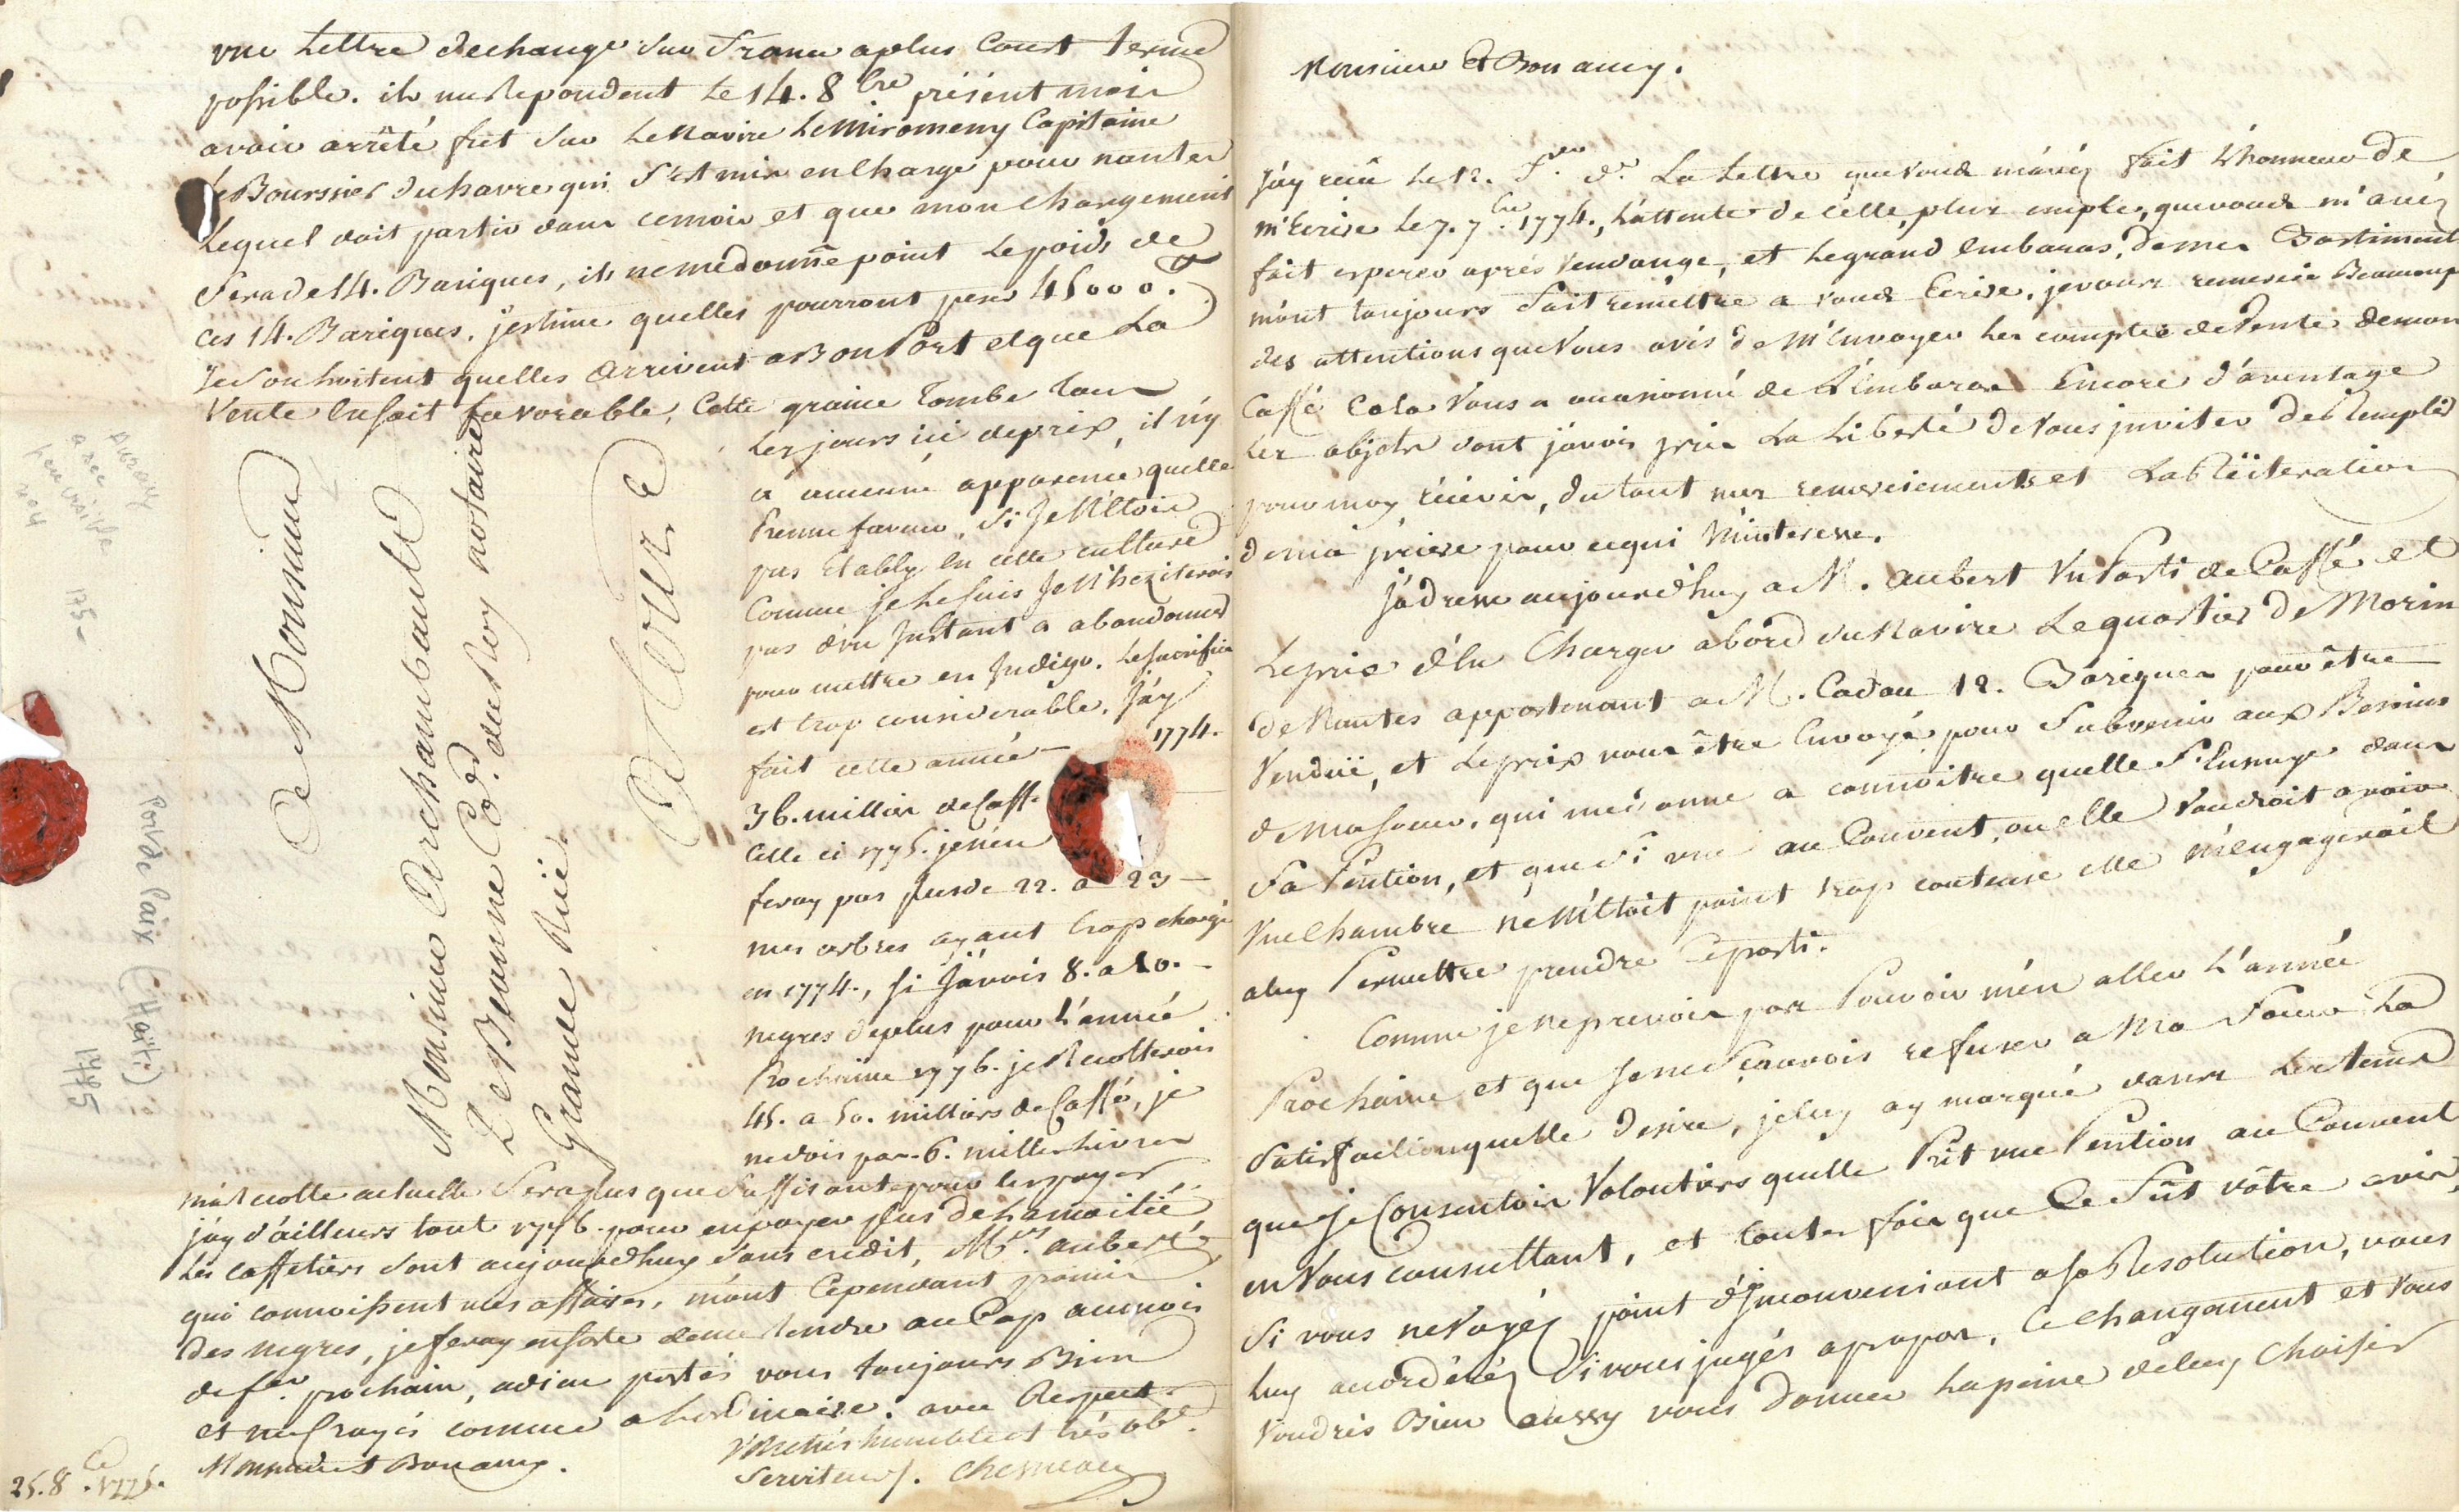 Monsieur Et Bon amy.
J'ay reçû le 12. f.er d.er La Lettre que vous m'avéz fait L'honneur de
m'Ecrire Le 7. 7.bre 1774., L'attente de celle plus emple, que vous m'avéz
fait esperer aprés vendange, et Le grand Embaras, de mes Bastiments
m'ont toujours fait remettre a vous Ecrire. je vous remercie Beaucoup
des attentions que Vous avés de M'Envoyer Les comptes de Vente de mon
Caffé Cela Vous a occasionné de L'Embaras Encore d'aventage
Les objets dont j'avois pris La Liberté de Vous jnviter del'emplir
pour moy récévés, du tout mes remerciements et La Réïteration
de ma priere pour ce qui M'interesse.
J'adresse aujourdhuy a M. aubert Vn Parti de Caffé et
Le prie d'En Charger abord du Navire Le quartier de Morin
de Nantes appartenant a M. Cadou 12. Bariques pour être
Venduë, et Le prix vous être Envoyé pour Subvenir aux Besoins
de Ma Soeur, qui me donne a connoitre quelle S'Ennuye dans
Sa Pention, et que Si une au Couvent, ou elle Voudroit avoir
Vne Chambre ne M'étoit point trop couteuse elle m'engageroit
a luy Permettre prendre Ce parti.
Comme je ne prevois pas Pouvoir m'en aller L'année
Prochaine et que Je ne Scaurois refuser a Ma Soeur La
Satisfaction quelle Desire, je luy ay marqué dans Les tems
que je Consentois Volontiers quelle Prit une Pention au Couvent
en Vous consultant, et toutes fois que Ce Fut vôtre avis,
Si vous ne Voyéz point d'Jnconveniant a Sa Resolution, vous
luy accordéréz Si vous jugés apropos, Ce Changement et Vous
Voudrés Bien aussy vous Donner La peine de luy Choisir
vne Lettre dechange Sur France a plus Court Terme
possible. ils me Repondent Le 14. 8.bre présent mois
avoir arrêté fret Sur Le Navire Le Miromeny Capitaine
Le Boursier du havre qui S'est mis en Charge pour nantes
Lequel doit partir dans ce mois et que mon Chargement
Sera de 14. Bariques, ils ne me donne point Le poids de
ces 14. Bariques. j'estime quelles pourront peser 15000.
Je Souhaitent quelles Arrivent a Bon Port et que La
Vente En Soit favorable. Cette graine Tombe Tous
Les jours ici de prix, il n'y
a aucune apparence quelle
Prenne faveur, Si Je N'Etois
pas Etably en cette culture
Comme Je Le Suis Je N'hezitrois
pas d'un Jnstant a abandonner
pour mettre en Jndigo. Le Sacrifice
est trop considerable. J'ay
fait cette année 1774.
36. millier de Caff
Celle ci 1775. je n'en
feray pas plus de 22. a 23
mes arbres ayant trop chargé
en 1774., Si J'avois 8. a 10.
negres de plus pour L'année
Prochaine 1776. je Recolterois
45. a 50. milliers de Caffé, je
ne dois pas 6. mille Livres
ma Recolte actuelle Sera plus que Suffisante pour les payer
j'ay d'ailleurs tout 1776. pour en payer plus de La moitié
Les Caffetiers Sont aujourdhuy Sans credit, Mrs. aubert
qui connoissent mes affaires, m'ont Cependant promis
des negres, je feray en sorte de me Rendre au Cap au mois
de f.er prochain, adieu portés vous toujours Bien
et me Croyés comme a L'ordinaire. avec Respect
Monsieur et Bon amy.
Votre trés humble et trés ob.t
Serviteur/. Chesneau
25. 8.bre 1775.
A Monsieur
Monsieur Archambault
De Beaune Co.er du Roy notaire
Grande Ruë.
A Tours
Port de Paix (Haïti)
1775
175-